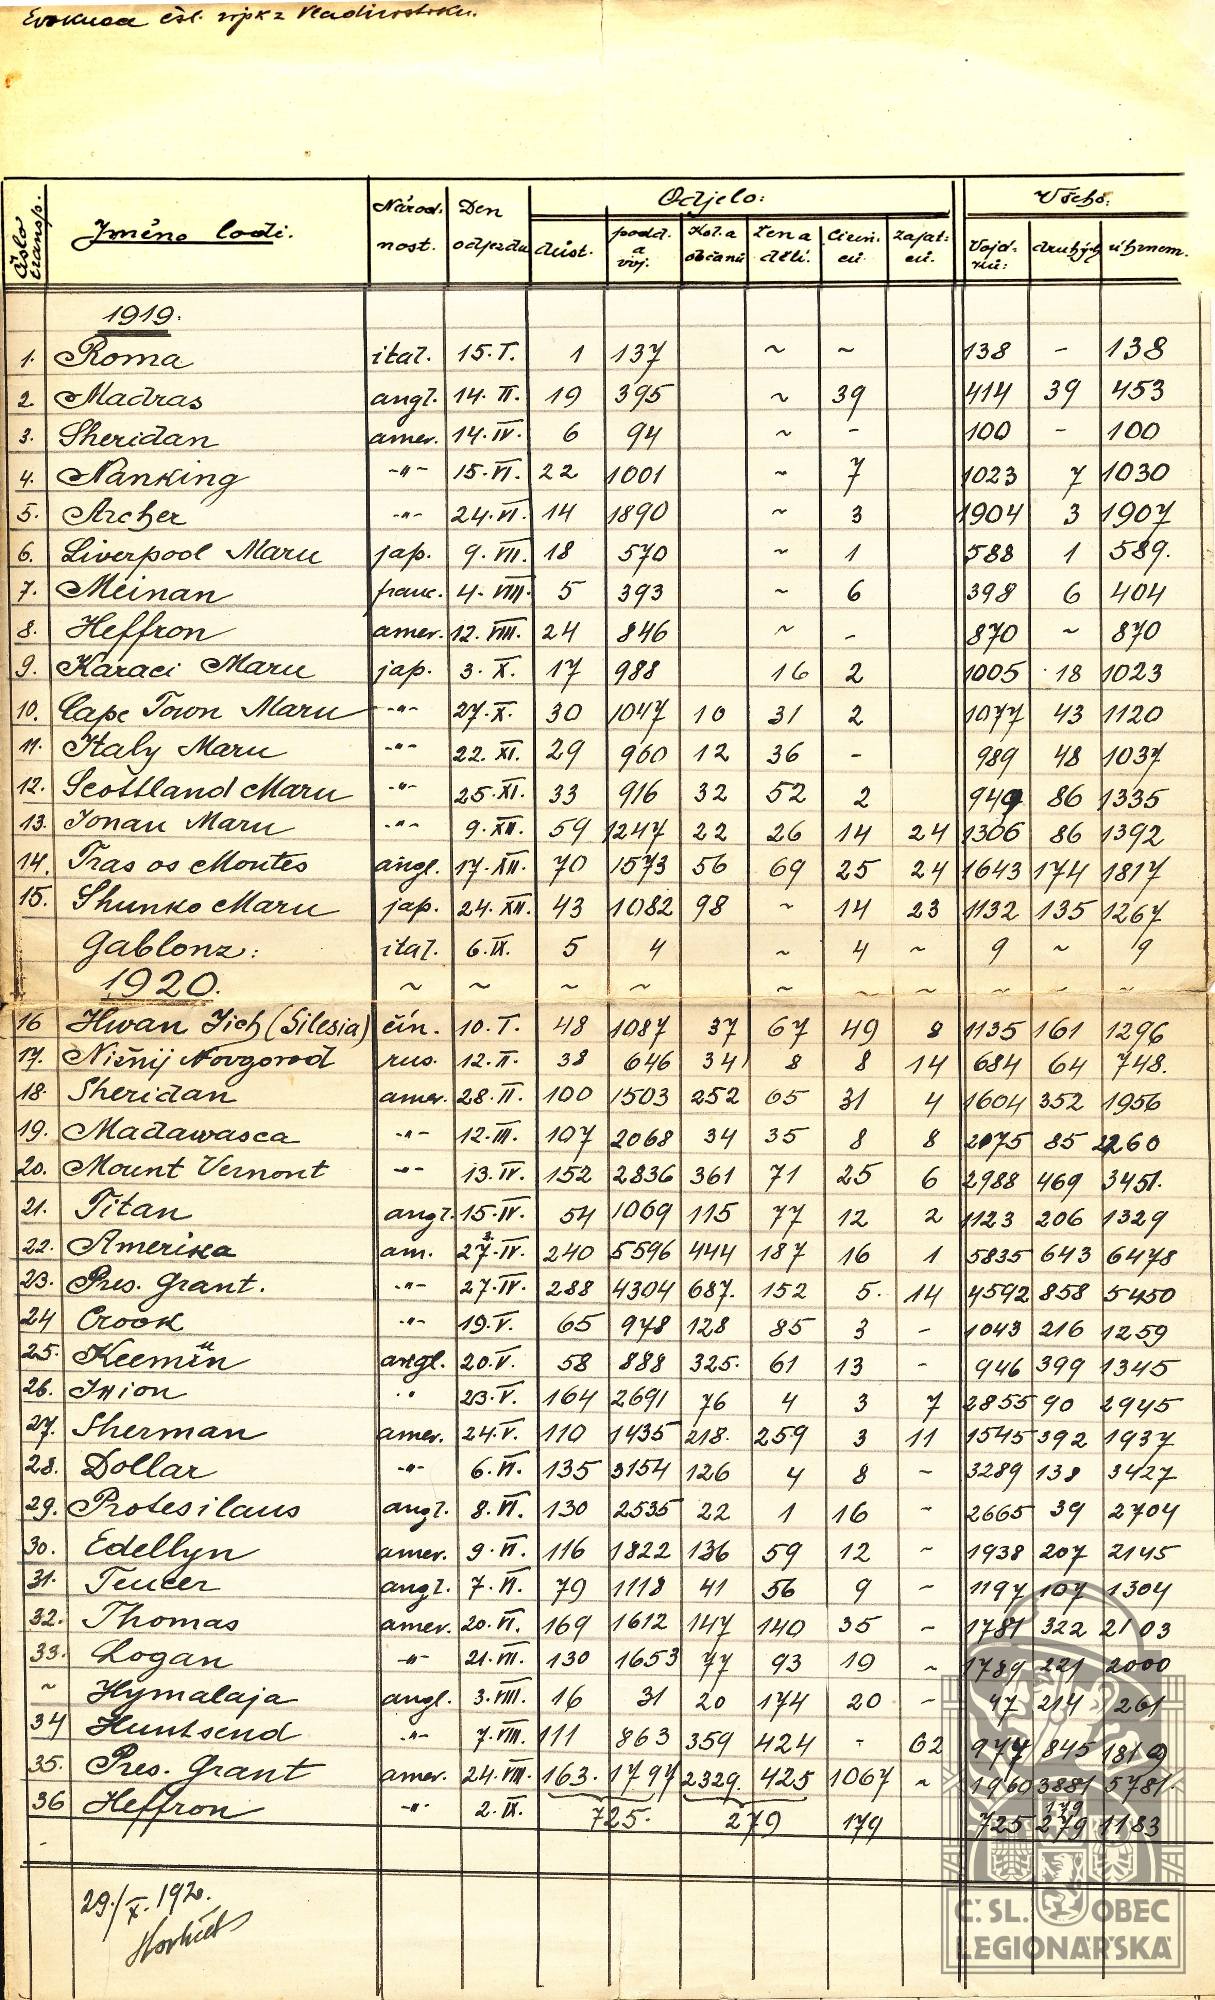 Evakuace čsl. vojsk z Vladivostoku.
Číslo transp. Jméno lodi. Národnost. Den odjezdu Odjelo: Všeho:
důst. podd. a voj. Kol. a občanů Žen a dětí. Cizinců Zajatců. Vojáků: druhých úhrnem.
1919.
1. Roma ital. 15. I. 1 137 ~ ~ 138 - 138
2. Madras angl. 14. II. 19 395 ~ 39 414 39 453
3. Sheridan amer. 14. IV. 6 94 ~ - 100 - 100
4. Nanking -"- 15. VI. 22 1001 ~ 7 1023 7 1030
5. Archer -"- 24. VI. 14 1890 ~ 3 1904 3 1907
6. Liverpool Maru jap. 9. VII. 18 570 ~ 1 588 1 589.
7. Meinan franc. 4. VIII. 5 393 ~ 6 398 6 404
8. Heffron amer. 12. VIII. 24 846 ~ - 870 ~ 870
9. Karaci Maru jap. 3. X. 17 988 16 2 1005 18 1023
10. Cape Town Maru -"- 27. X. 30 1047 10 31 2 1077 43 1120
11. Italy Maru -"- 22. XI. 29 960 12 36 - 989 48 1037
12. Scottland Maru -"- 25. XI. 33 916 32 52 2 949 86 1335
13. Jonan Maru -"- 9. XII. 59 1247 22 26 14 24 1306 86 1392
14. Tras os Montes angl. 17. XII. 70 1573 56 69 25 24 1643 174 1817
15. Shunko Maru jap. 24. XII. 43 1082 98 ~ 14 23 1132 135 1267
Gablonz: ital. 6. IX. 5 4 ~ 4 ~ 9 ~ 9
1920. ~ ~ ~ ~ ~ ~ ~ ~ ~ ~
16 Hwan Jich (Silesia) čín. 10. I. 48 1087 37 67 49 8 1135 161 1296
17. Nižnij Novgorod rus. 12. II. 38 646 34 8 8 14 684 64 748.
18. Sheridan amer. 28. II. 100 1503 252 65 31 4 1604 352 1956
19. Madawasca -"- 12. III. 107 2068 34 35 8 8 2175 85 2260
20. Mount Vernont -"- 13. IV. 152 2836 361 71 25 6 2988 469 3451.
21. Titan angl. 15. IV. 54 1069 115 77 12 2 1123 206 1329
22. Amerika am. 27. IV. 240 5596 444 187 16 1 5835 643 6478
23. Pres. Grant. -"- 27. IV. 288 4304 687. 152 5. 14 4592 858 5450
24 Crook -"- 19. V. 65 978 128 85 3 - 1043 216 1259
25. Keemün angl. 20. V. 58 888 325. 61 13 - 946 399 1345
26. Ixion " 23. V. 164 2691 76 4 3 7 2855 90 2945
27. Sherman amer. 24. V. 110 1435 218. 259 3 11 1545 392 1937
28. Dollar -"- 6. VI. 135 3154 126 4 8 ~ 3289 138 3427
29. Protesilaus angl. 8. VI. 130 2535 22 1 16 ~ 2665 39 2704
30. Edellyn amer. 9. VI. 116 1822 136 59 12 ~ 1938 207 2145
31. Teucer angl. 7. VI. 79 1118 41 56 9 ~ 1197 107 1304
32. Thomas amer. 20. VI. 169 1612 147 140 35 ~ 1781 322 2103
33. Logan -"- 21. VII. 130 1653 77 93 19 ~ 1789 221 2000
~ Hymalaja angl. 3. VIII. 16 31 20 174 20 - 47 214 261
34 Huntsend -"- 7. VIII. 111 863 359 424 - 62 974 845 1819
35. Pres. Grant amer. 24. VIII. 163. 1797 2329. 425 1067 ~ 1960 3881 5781.
36 Heffron -"- 2. IX. 725. 279 179 725 179 279 1183
-
29./X. 1920.
Č.SL. OBEC
LEGIONÁŘSKÁ